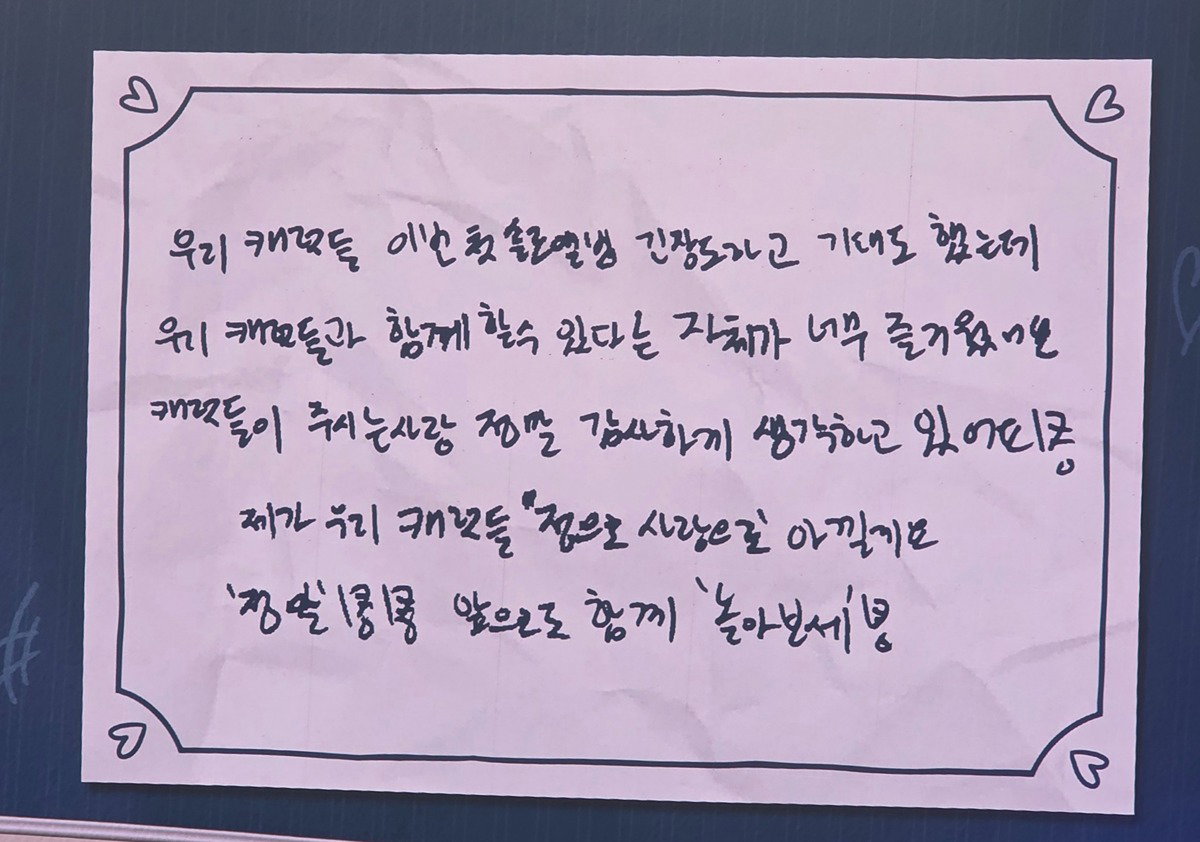 우리 캐럿들 이번 첫 솔로앨범 긴장도하고 기대도 했는데
우리 캐럿들과 함께할수 있다는 자체가 너무 즐거웠어요
캐럿들이 주시는사랑 정말 감사하게 생각하고 있어
제가 우리 캐럿들 "정으로 사랑으로" 아낄게요
'정말' 앞으로도 함께 '놀아보세'
#